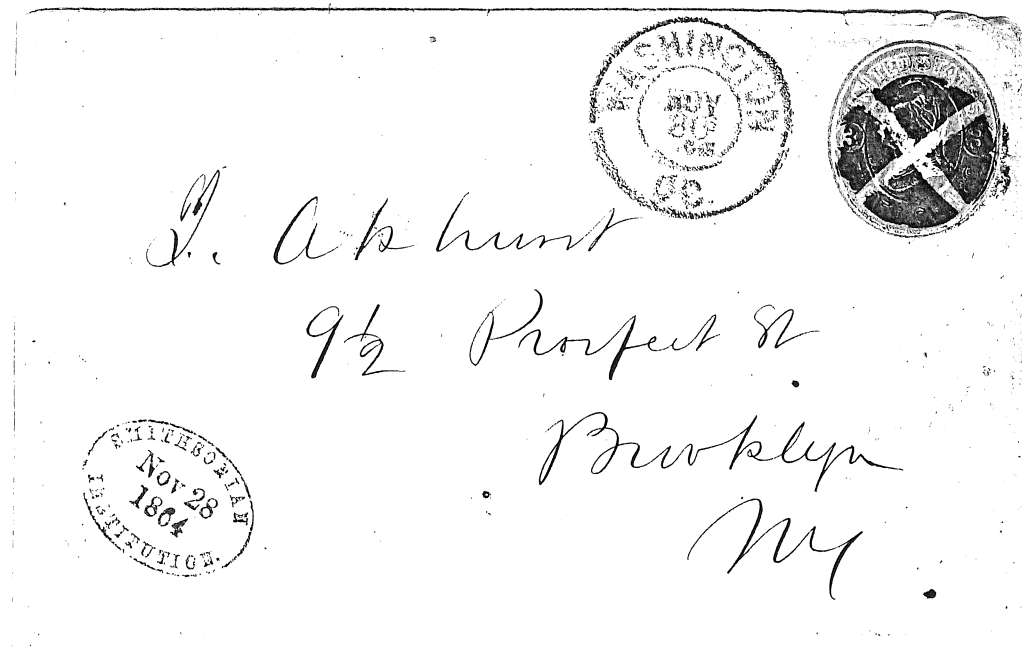 WASHINGTON
NOV
30
D.C.
UNITED STATES
J. Akhurst
9½ Prospect St
Brooklyn
NY
SMITHSONIAN
Nov 28
1864
INSTITUTION.